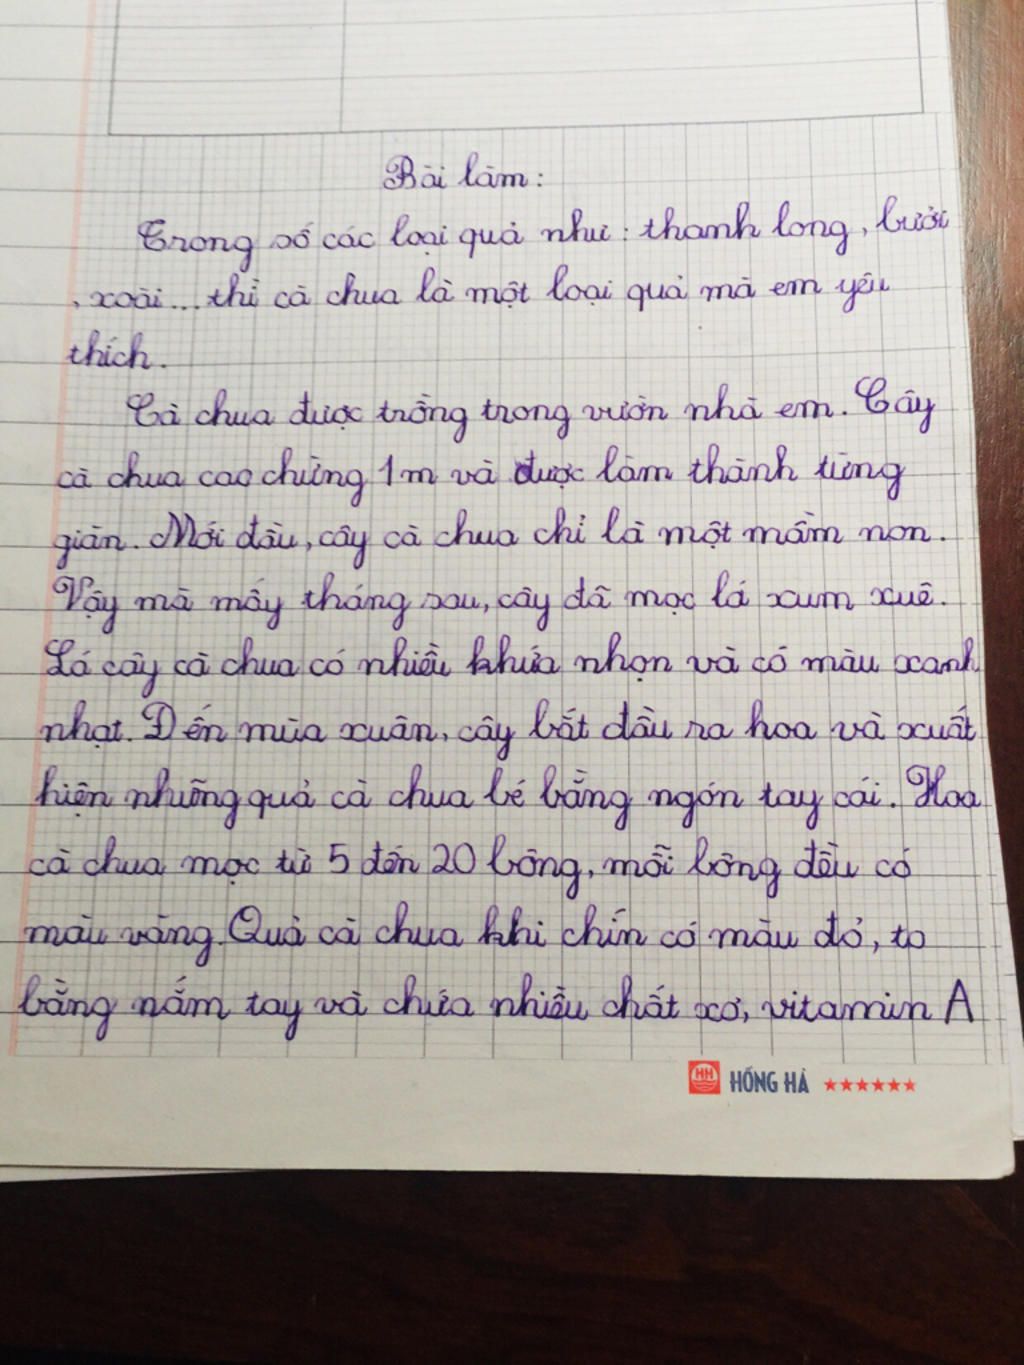 Bài làm:
Trong số các loại quả như: thanh long, bưởi
, xoài... thì cà chua là một loại quả mà em yêu
thích.
Cà chua được trồng trong vườn nhà em. Cây
cà chua cao chừng 1m và được làm thành từng
giàn. Mới đầu, cây cà chua chỉ là một mầm non.
Vậy mà mấy tháng sau, cây đã mọc lá xum xuê.
Lá cây cà chua có nhiều khứa nhọn và có màu xanh
nhạt. Đến mùa xuân, cây bắt đầu ra hoa và xuất
hiện những quả cà chua bé bằng ngón tay cái. Hoa
cà chua mọc từ 5 đến 20 bông, mỗi bông đều có
màu vàng. Quả cà chua khi chín có màu đỏ, to
bằng nắm tay và chứa nhiều chất xơ, vitamin A
HH HỒNG HÀ